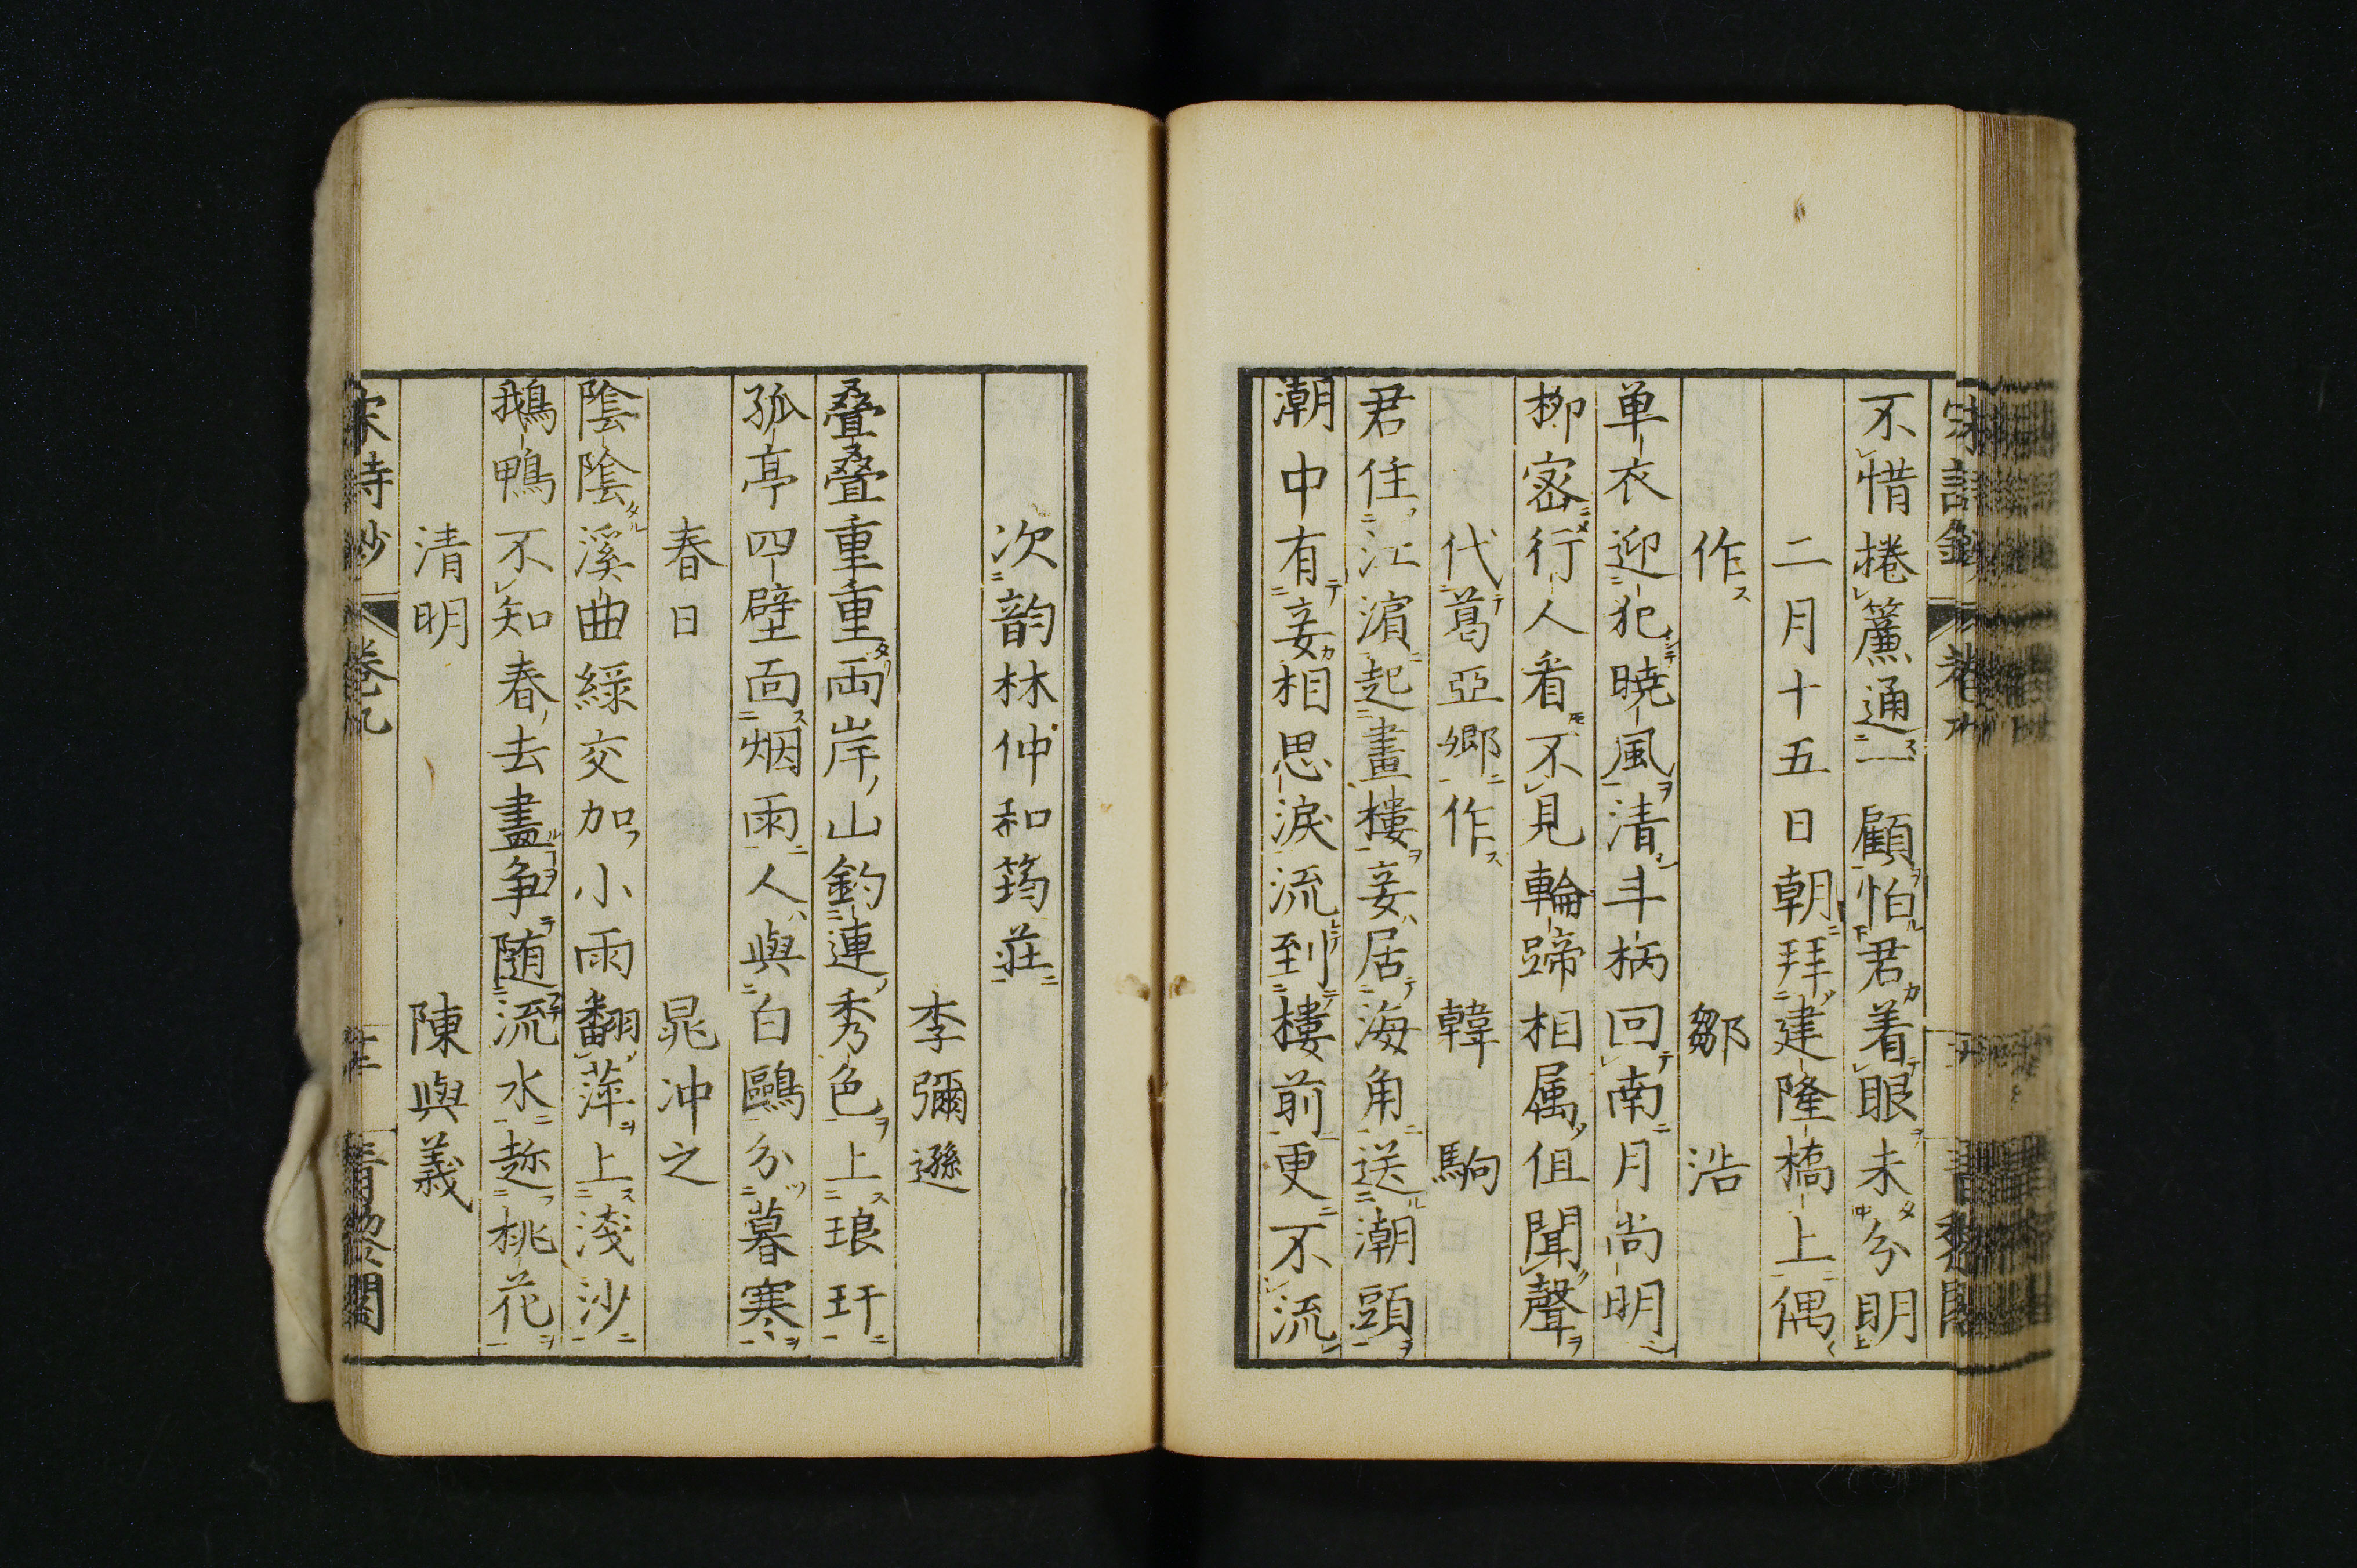 不惜捲簾通一顧怕君着眼未分明
二月十五日朝拜建隆橋上偶
作　鄒沿
单衣迎犯曉風清斗柄回南月尚明
柳密行人看不見輪蹄相属但聞聲
代葛亞卿作　韓駒
君住江濵起畫樓妾居海角送潮頭
潮中有妾相思淚流到樓前更不流
次韵林仲和筠莊
李彌遜
叠叠重重両岸山釣連秀色上琅玕
孤亭四壁面烟雨人與白鷗分暮寒
春日　晁冲之
陰陰溪曲緑交加小雨翻萍上淺沙
鵝鴨不知春去盡争随流水趂桃花
清明　陳與義
宋詩鈔　卷